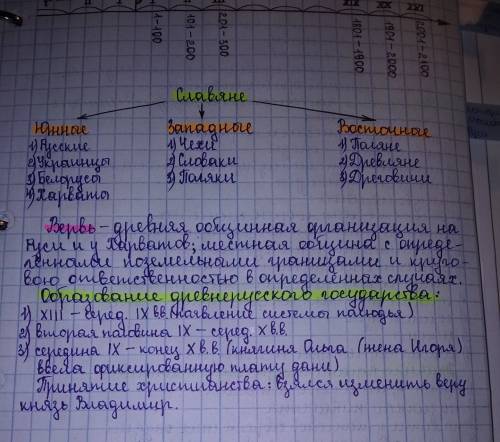 I II I II XIX XX XXI
1-100 101-200 201-300 1801-1900 1901-2000 2001-2100
Славяне
Южные Западные Восточные
1) Русские 1) Чехи 1) Поляне
2) Украинцы 2) Словаки 2) Древляне
3) Белорусы 3) Поляки 3) Дреговичи
4) Харваты
Вервь - древняя общинная организация на
Руси и у Харватов; местная община с опреде-
лёнными поземельными границами и круго-
вою ответственностью в определённых случаях.
Образование древнерусского государства:
1) XIII - серед. IX вв. (появление системы полюдья)
2) вторая половина IX - серед. X в.в.
3) середина IX - конец X в.в. (княгиня Ольга (жена Игоря)
ввела фиксированную плату дани)
Принятие христианства: взялся изменить веру
князь Владимир.